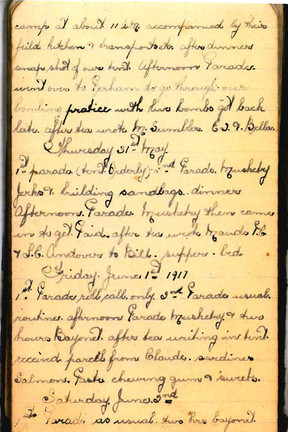 camp at about 11 a.m accompanied by their
field kitchen & transports etc after dinners
snap shot of our tent. Afternoon Parade.
went over to Perham to go through our
bombing pratice with live bombs got back
late. after tea wrote M. Sumbler. E.J. & Bella.
Thursday 31st May
1st parade (tent Orderly) 2nd Parade. Musketry
Jerks & building sandbags. dinner
Afternoon. Parade. Musketry then came
on to get Paid. after tea wrote Maude P.C
& L.C. Andover to Bill. supper. bed
Friday. June. 1st 1917
1st Parade roll call. only 2nd Parade usual.
routine. afternoon Parade Musketry & two
hours Bayonet. after tea writing in tent.
received parcel from Claude. sardines
Salmon. Paste chewing gum & sweets.
Saturday June. 2nd
1st Parade as usual. two hrs bayonet